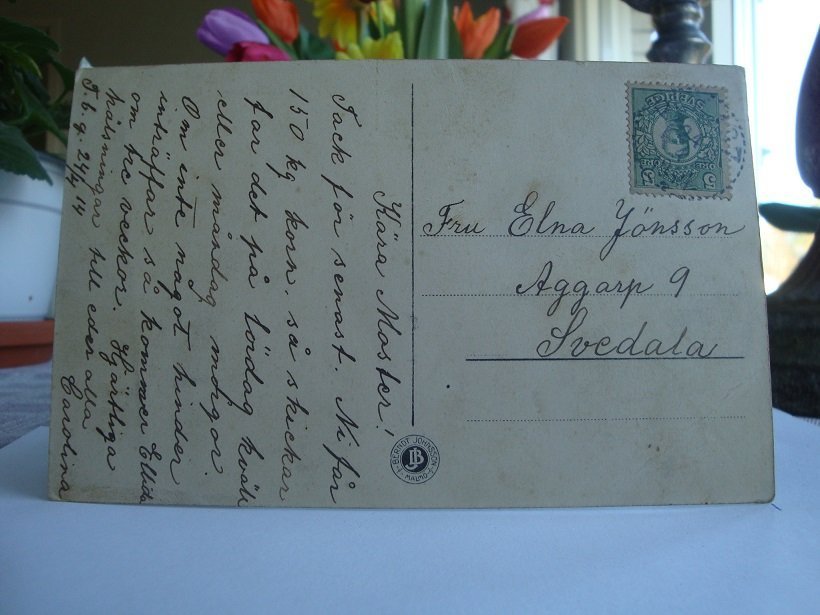 Kära Moster!
Tack för senast. Ni får
150 kg korn. så skickar
far det på lördag kväll
eller måndag morgon.
Om inte något hinder
inträffar så kommer Ellida
om tre veckor. Hjärtliga
hälsningar till eder alla
T.b.g. 24/4 14 Carolina
Fru Elna Jönsson
Aggarp 9
Svedala
BERNDT JOHNSSON
JB
MALMÖ
SVERIGE
5